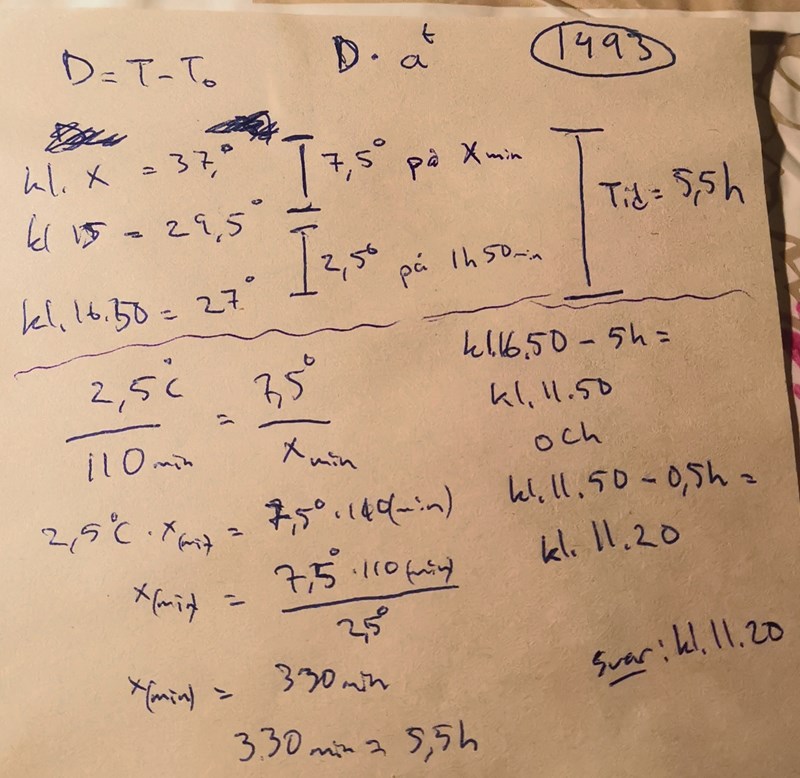 D = T - T₀
D · aᵗ
1493
kl. x = 37,°
7,5° på x min
Tid = 5,5h
kl 15 = 29,5°
2,5° på 1h 50 min
kl. 16.50 = 27°
2,5°C / 110 min = 7,5° / x min
2,5°C · x(min) = 7,5° · 110(min)
x(min) = 7,5° · 110 (min) / 2,5°
x(min) = 330 min
330 min = 5,5h
kl.16.50 - 5h =
kl. 11.50
och
kl. 11.50 - 0,5h =
kl. 11.20
svar: kl. 11.20